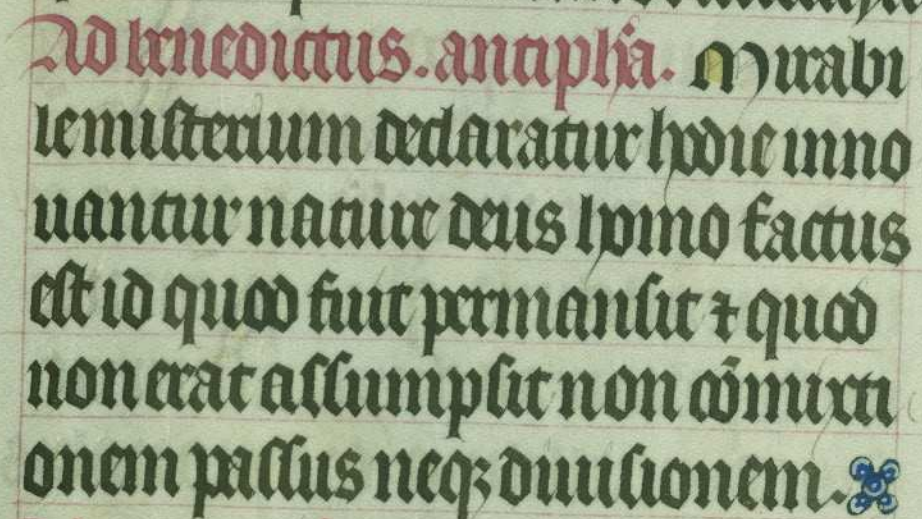 Ad benedictus. antipha. Mirabi
le misterium declaratur hodie inno
uantur nature deus homo factus
est id quod fuit permansit ⁊ quod
non erat assumpsit non cōmixti
onem passus neqꝫ diuisionem.